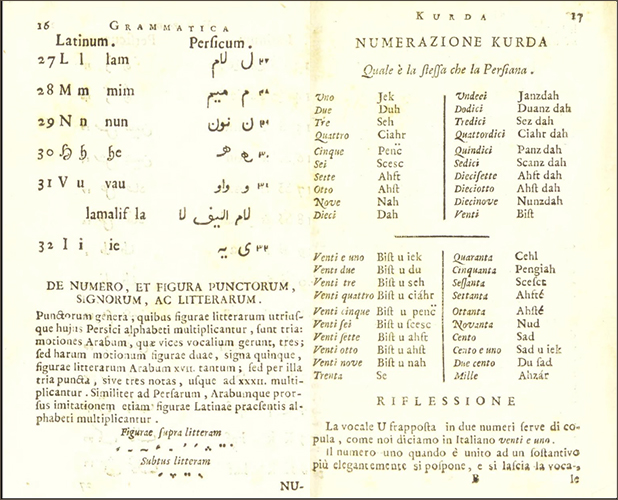 16 GRAMMATICA
Latinum. Persicum.
27 L l lam لام ل ٢٧
28 M m mim ميم م ٢٨
29 N n nun نون ن ٢٩
30 he ٣٠
31 V u vau واو و ٣١
lamalif la لام اليف لا
32 I i ie يه ى ٣٢
DE NUMERO, ET FIGURA PUNCTORUM,
SIGNORUM, AC LITTERARUM.
Punctorum genera, quibus figurae litterarum utriuſ-
que hujus Persici alphabeti multiplicantur, ſunt tria:
motiones Arabum, quæ vices vocalium gerunt, tres;
ſed harum motionum figurae duae, signa quinque,
figurae litterarum Arabum xvii. tantum; ſed per illa
tria puncta, ſive tres notas, uſque ad xxxii. multi-
plicantur. Similiter ad Perſarum, Arabumque pror-
ſus imitationem etiam figurae Latinae praeſentis al-
phabeti multiplicantur.
Figurae ſupra litteram
Subtus litteram
NU-
KURDA 17
NUMERAZIONE KURDA
Quale è la ſteſſa che la Perſiana.
Uno Jek
Due Duh
Tre Seh
Quattro Ciahr
Cinque Penc̈
Sei Scesc
Sette Ahft
Otto Ahſt
Nove Nah
Dieci Dah
Undeci Janzdah
Dodici Duanz dah
Tredici Sez dah
Quattordici Ciahr dah
Quindici Panz dah
Sedici Scanz dah
Dieciſette Ahft dah
Dieciotto Ahſt dah
Diecinove Nunzdah
Venti Biſt
Venti e uno Biſt u iek
Venti due Biſt u du
Venti tre Biſt u seh
Venti quattro Biſt u ciahr
Venti cinque Biſt u penc̈
Venti ſei Biſt u ſcesc
Venti ſette Biſt u ahft
Venti otto Biſt u ahſt
Venti nove Biſt u nah
Trenta Se
Quaranta Cehl
Cinquanta Pengiah
Seſſanta Scefct
Settanta Ahfté
Ottanta Ahſté
Novanta Nud
Cento Sad
Cento e uno Sad u iek
Due cento Du ſad
Mille Ahzár
RIFLESSIONE
La vocale U frappoſta in due numeri ſerve di co-
pula, come noi diciamo in Italiano venti e uno.
Il numero uno quando è unito ad un ſoſtantivo
più elegantemente si poſpone, e si laſcia la voca-
B le